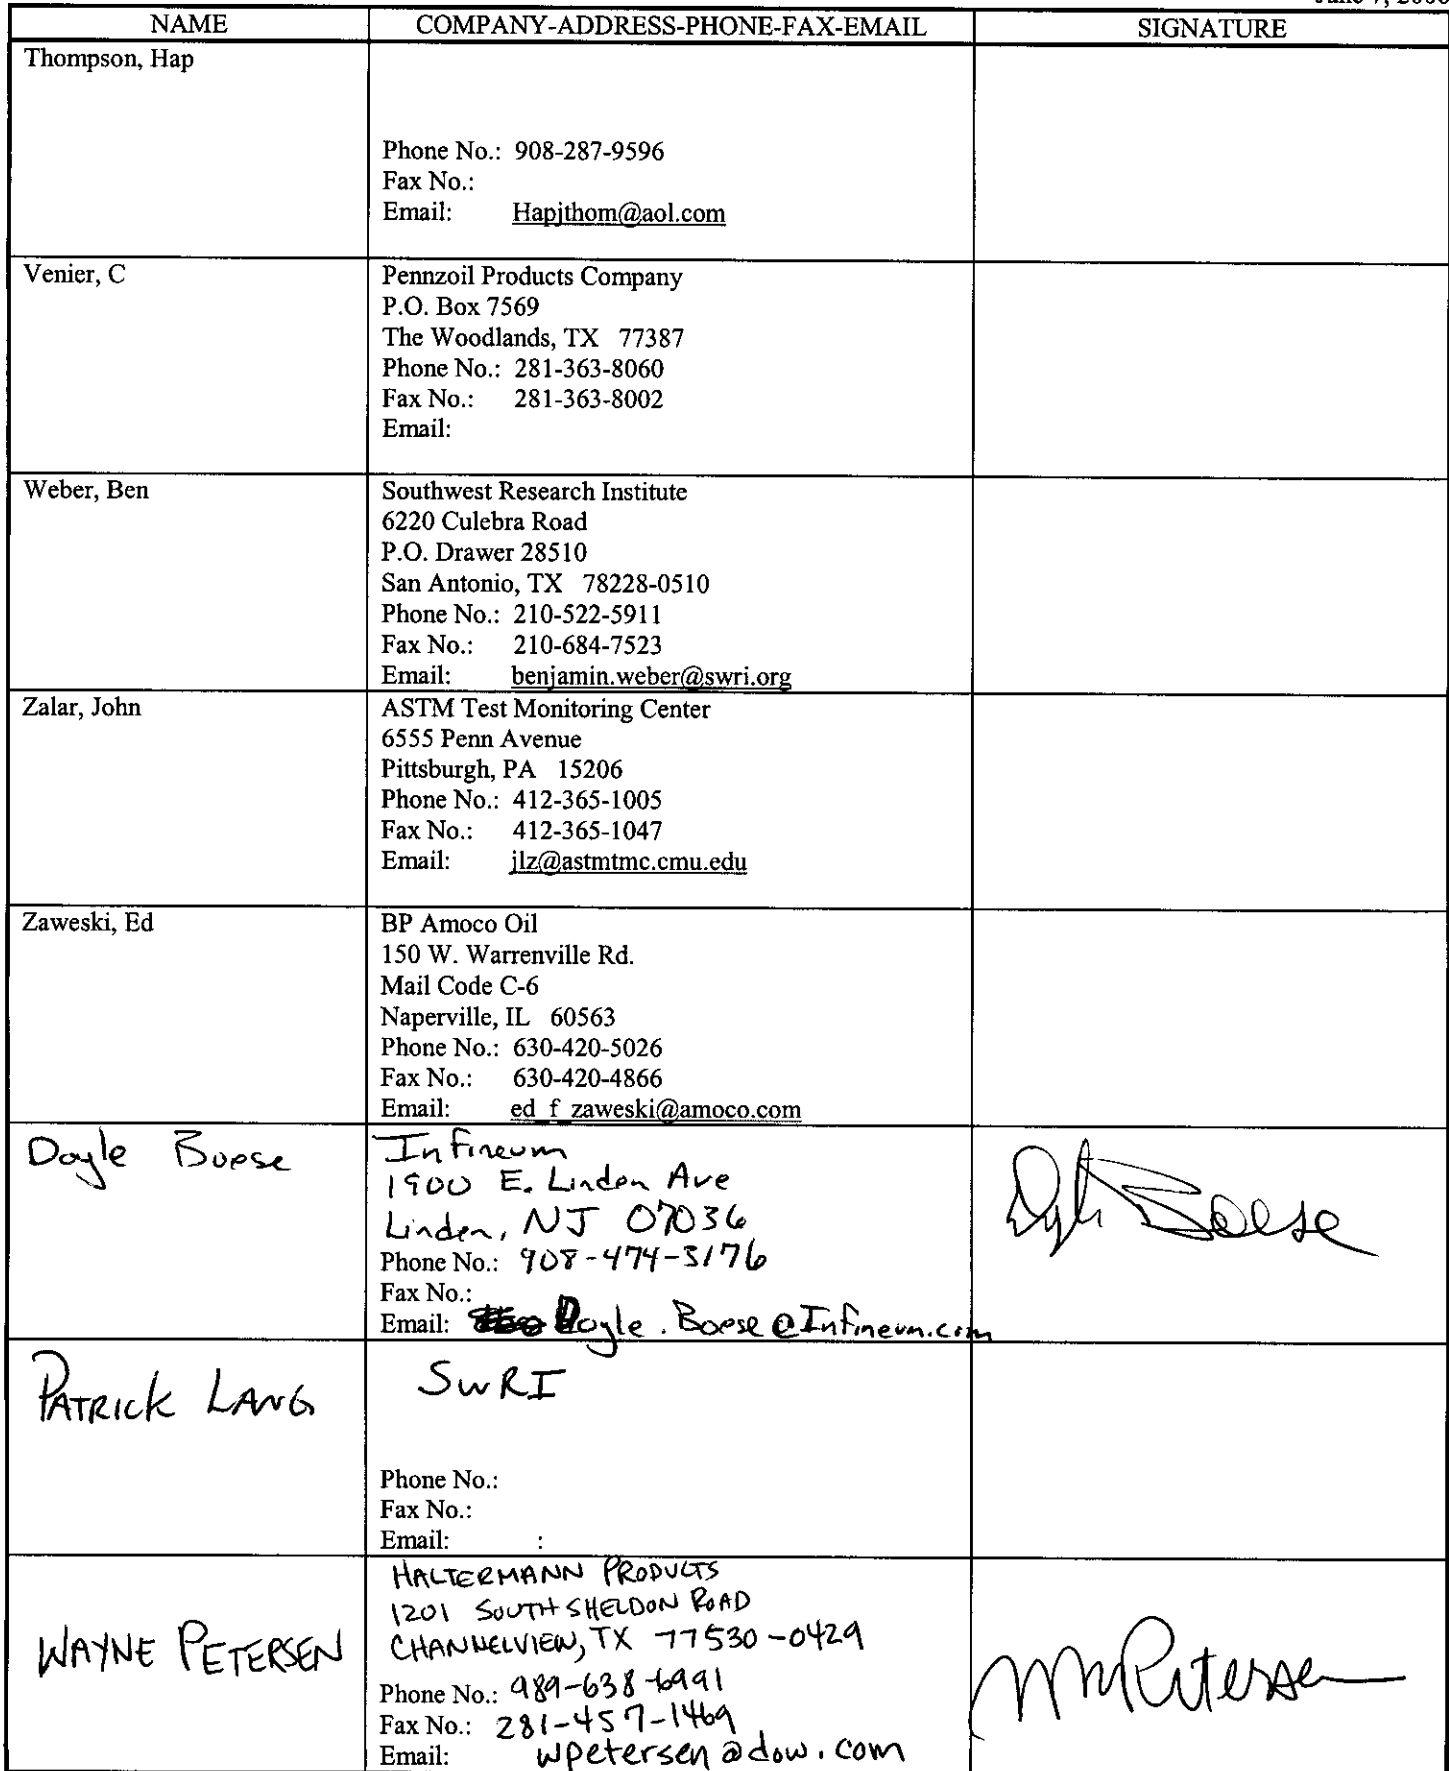 NAME COMPANY-ADDRESS-PHONE-FAX-EMAIL SIGNATURE
Thompson, Hap
Phone No.: 908-287-9596
Fax No.:
Email: Hapjthom@aol.com
Venier, C
Pennzoil Products Company
P.O. Box 7569
The Woodlands, TX 77387
Phone No.: 281-363-8060
Fax No.: 281-363-8002
Email:
Weber, Ben
Southwest Research Institute
6220 Culebra Road
P.O. Drawer 28510
San Antonio, TX 78228-0510
Phone No.: 210-522-5911
Fax No.: 210-684-7523
Email: benjamin.weber@swri.org
Zalar, John
ASTM Test Monitoring Center
6555 Penn Avenue
Pittsburgh, PA 15206
Phone No.: 412-365-1005
Fax No.: 412-365-1047
Email: jlz@astmtmc.cmu.edu
Zaweski, Ed
BP Amoco Oil
150 W. Warrenville Rd.
Mail Code C-6
Naperville, IL 60563
Phone No.: 630-420-5026
Fax No.: 630-420-4866
Email: ed_f_zaweski@amoco.com
Doyle Boese
Infineum
1900 E. Linden Ave
Linden, NJ 07036
Phone No.: 908-474-3176
Fax No.:
Email: Doyle.Boese@Infineum.com
Doyle Boese
PATRICK LANG
SwRI
Phone No.:
Fax No.:
Email: :
WAYNE PETERSEN
HALTERMANN PRODUCTS
1201 SOUTH SHELDON ROAD
CHANNELVIEW, TX 77530-0429
Phone No.: 989-638-6991
Fax No.: 281-457-1469
Email: wpetersen@dow.com
WM Petersen